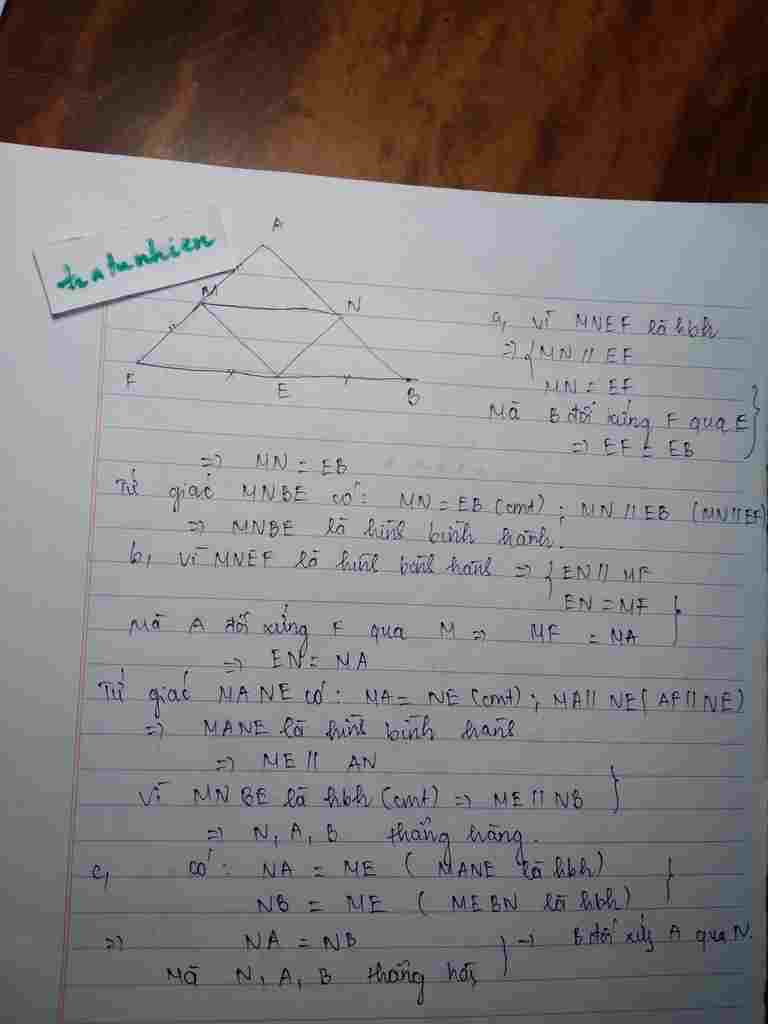 tratunhien
A
M
N
F
E
B
a, Vì MNEF là hbh
=> { MN // EF
MN = EF
Mà B đối xứng F qua E
=> EF = EB
=> MN = EB
Tứ giác MNBE có: MN = EB (cmt); MN // EB (MN//EF)
=> MNBE là hình bình hành.
b, Vì MNEF là hình bình hành => { EN // MF
EN = MF
Mà A đối xứng F qua M => MF = MA
=> EN = MA
Tứ giác MANE có: MA = NE (cmt); MA // NE (AF // NE)
=> MANE là hình bình hành
=> ME // AN
Vì MNBE là hbh (cmt) => ME // NB
=> N, A, B thẳng hàng.
c, có: NA = ME (MANE là hbh)
NB = ME (MEBN là hbh)
=> NA = NB
Mà N, A, B thẳng => B đối xứng A qua N.